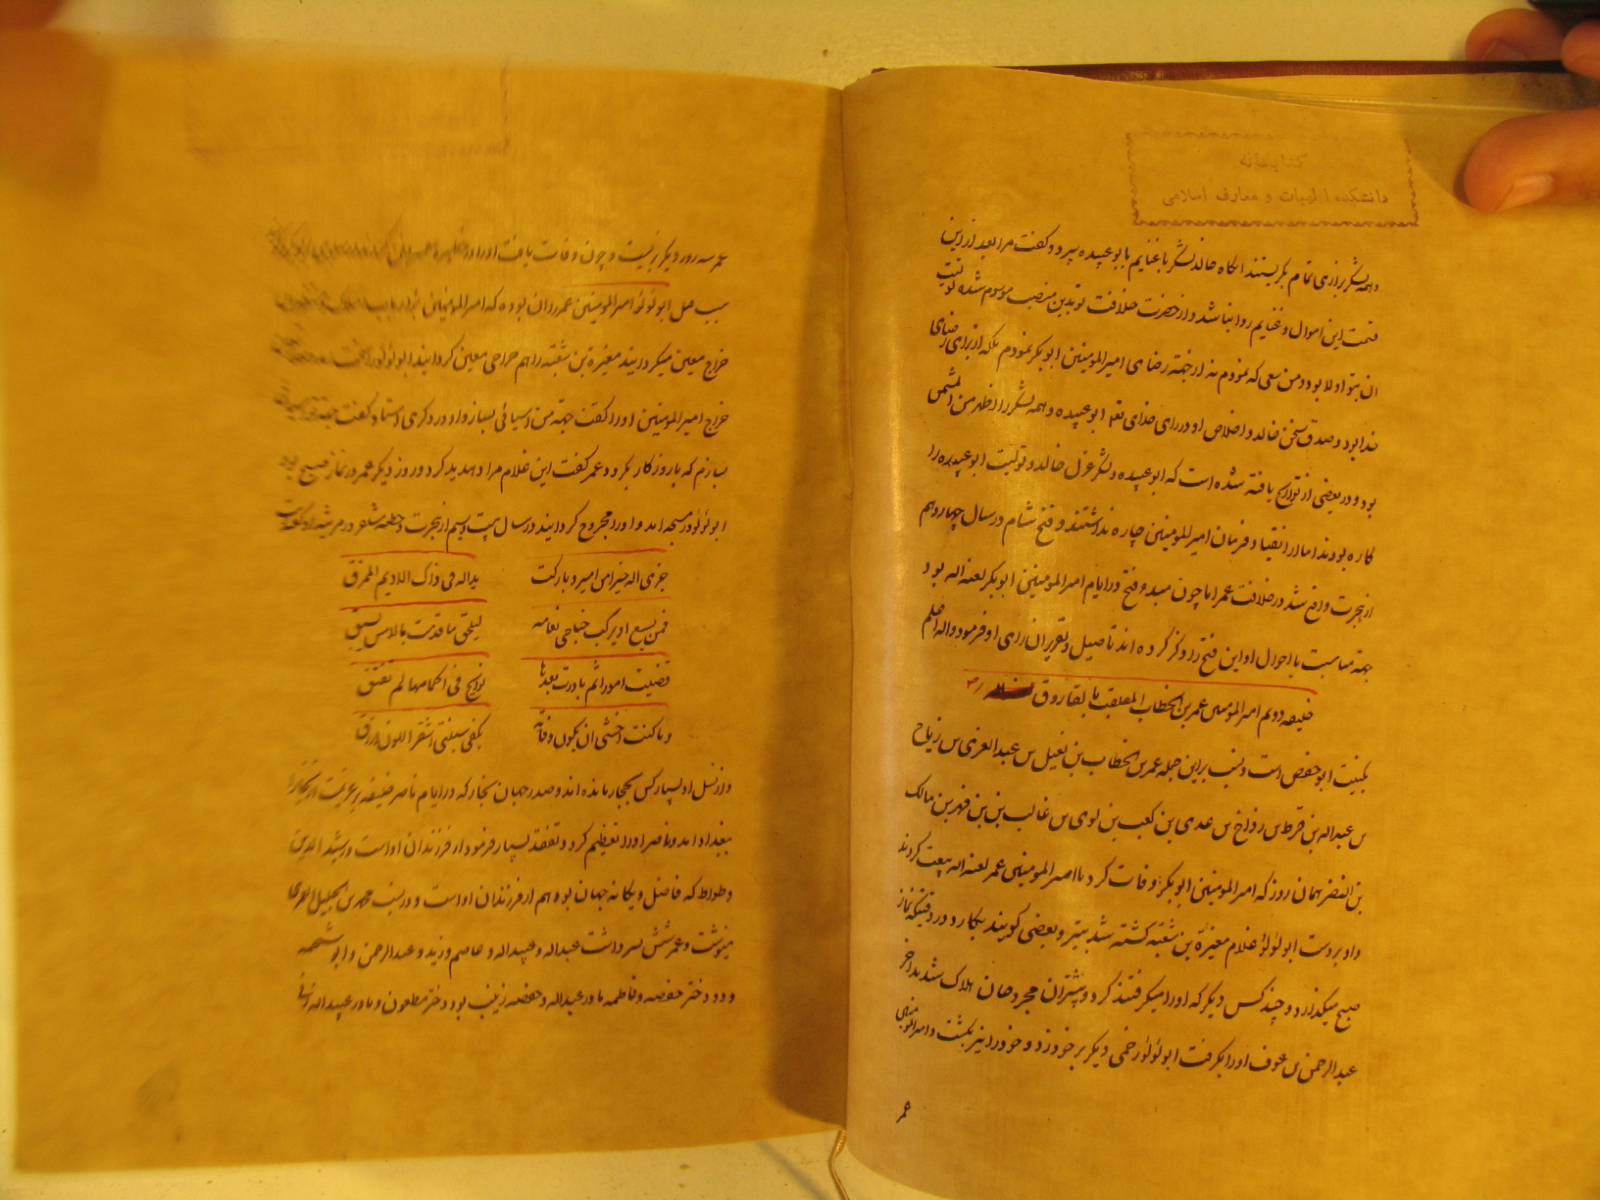 کتابخانه
دانشکده الهیات و معارف اسلامی
و همه لشکر بزاری تمام بگریستند انگاه خالد لشکر با غنایم بابو عبیده سپرد و گفت مرا بعد ازین
قسمت این اموال و غنایم روا نباشد و از حضرت خلافت تو بدین منصب موسوم شده تولیت
ان بتو اولا بود و من سعی که نمودم نه از جهة رضای امیر المومنین ابوبکر نمودم بلکه از برای رضای
خدا بود و صدق سخن خالد و اخلاص او در رای خدای تعو ابو عبیده و همه لشکر را اظهر من الشمس
بود و در بعضی از تواریخ یافته شده است که ابو عبیده و لشکر عزل خالد و تولیت ابو عبیده را
کاره بودند اما از انقیاد فرمان امیر المومنین چاره نداشتند و فتح شام در سال چهاردهم
از هجرت واقع شد در خلافت عمر اما چون مبدو فتح در ایام امیر المومنین ابوبکر لعنه اله بود
جهة مناسبت با احوال او این فتح را ذکر کرده اند تاصیل و تقریر ان رای او فرمود واله اعلم
خلیفه دویم امیر المومنین عمر بن الخطاب الملقب بالفاروق
بکنیت ابو حفص است و نسب بر این جمله عمر بن الخطاب بن نفیل بن عبد العزی بن ریاح
بن عبداله بن قرط بن رزاخ بن عدی بن کعب بن لوی بن غالب بن بن فهر بن مالک
بن النضر همان روز که امیر المومنین ابوبکر وفات کرد با امیر المومنین عمر لعنه اله بیعت کردند
و او بر دست ابو لؤلؤ غلام مغیرة بن شعبه کشته شد بتبر و بعضی گویند بکارد و در وقتیکه نماز
صبح میگذارد و چند کس دیگر که او را میگرفتند کرد و بیشتران مجروحان هلاک شدند اخر
عبد الرحمن بن عوف او را بگرفت ابو لؤلؤ زخمی دیگر بر خود زد و خود را نیز بکشت و امیر المومنین
عمر
عمر سه روز دیگر بزیست و چون وفات یافت او را در
سبب قتل ابو لؤلؤ امیر المومنین عمر را ان بوده که امیر المومنین
خراج معین میکردانید مغیرة بن شعبه را هم خراجی معین کردانید ابو لؤلؤ
خراج امیر المومنین او را گفت جهة من اسیائی بساز و او درودگری استاد گفت
بسازم که باز روزگار بگردد عمر گفت این غلام مرا تهدید کرد و روز دیگر عمر در نماز صبح بود
ابو لؤلؤ در مسجد امد و او را مجروح کردانید در سال بیست و سیم از هجرت و حطیه شاعر در مرثیه او گفت
جزی اله خیرا من امیر و بارکت یداله فی ذاک الادیم الممزق
فمن یسع او یرکب جناحی نعامه لیلحق ما قدمت بالامس یسبق
قضیت امورا ثم غادرت بعدها نوایح فی اکمامها لم تفتق
و ما کنت اخشی ان یکون وفاته بکفی سبنتی ازرق
و از نسل او بسیار کس بحجاز مانده اند و صدر جهان بخارا که در ایام ناصر خلیفه
ببغداد امد و ناصر او را تعظیم کرد و تفقد بسیار فرمود از فرزندان او است و رشید الدین
وطواط که فاضل و یگانه جهان بوده هم از فرزندان او است و در نسب محمد بن الجلیل العمری
مینوشت و عمر شش پسر داشت عبداله و عبیداله و عاصم و زید و عبد الرحمن و ابو شحمه
و دو دختر حفصه و فاطمه مادر عبداله و حفصه زینب بود دختر مظعون و مادر عبیداله